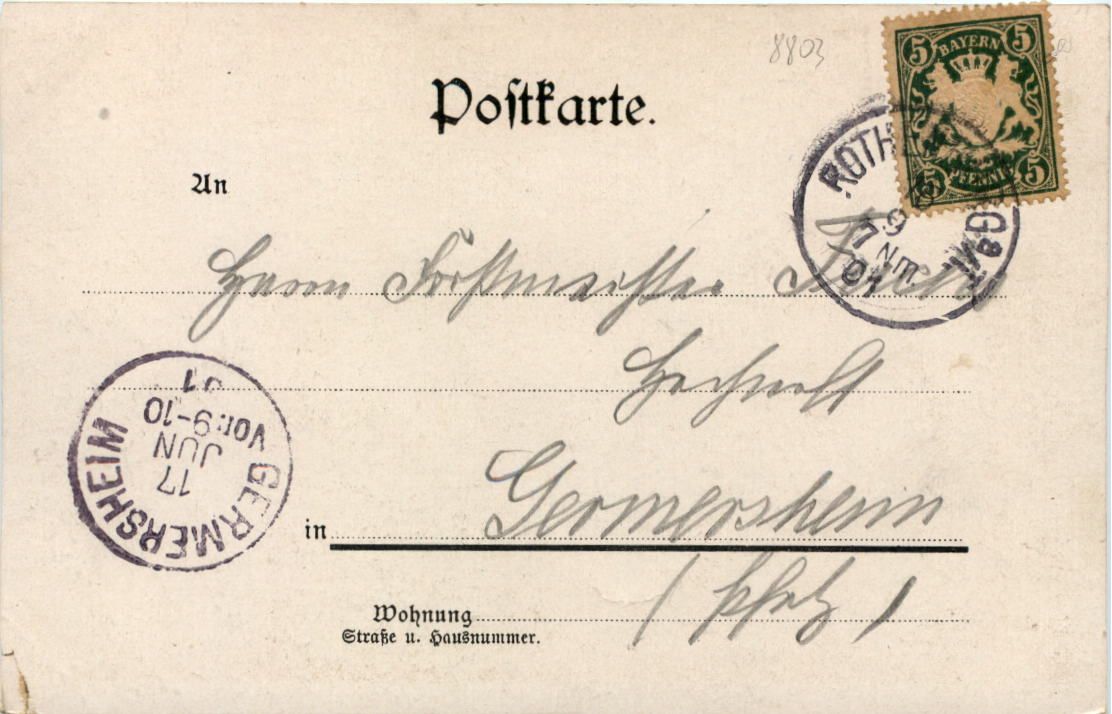 8803
BAYERN
5 5
5 PFENNIG 5
Postkarte.
ROTH
G a/M.
7 Nm
01
An
Herrn Forstmeister
Hochwohl
GERMERSHEIM
17
JUN
Vor. 9-10
01
in Germersheim
(Pfalz)
Wohnung
Straße u. Hausnummer.